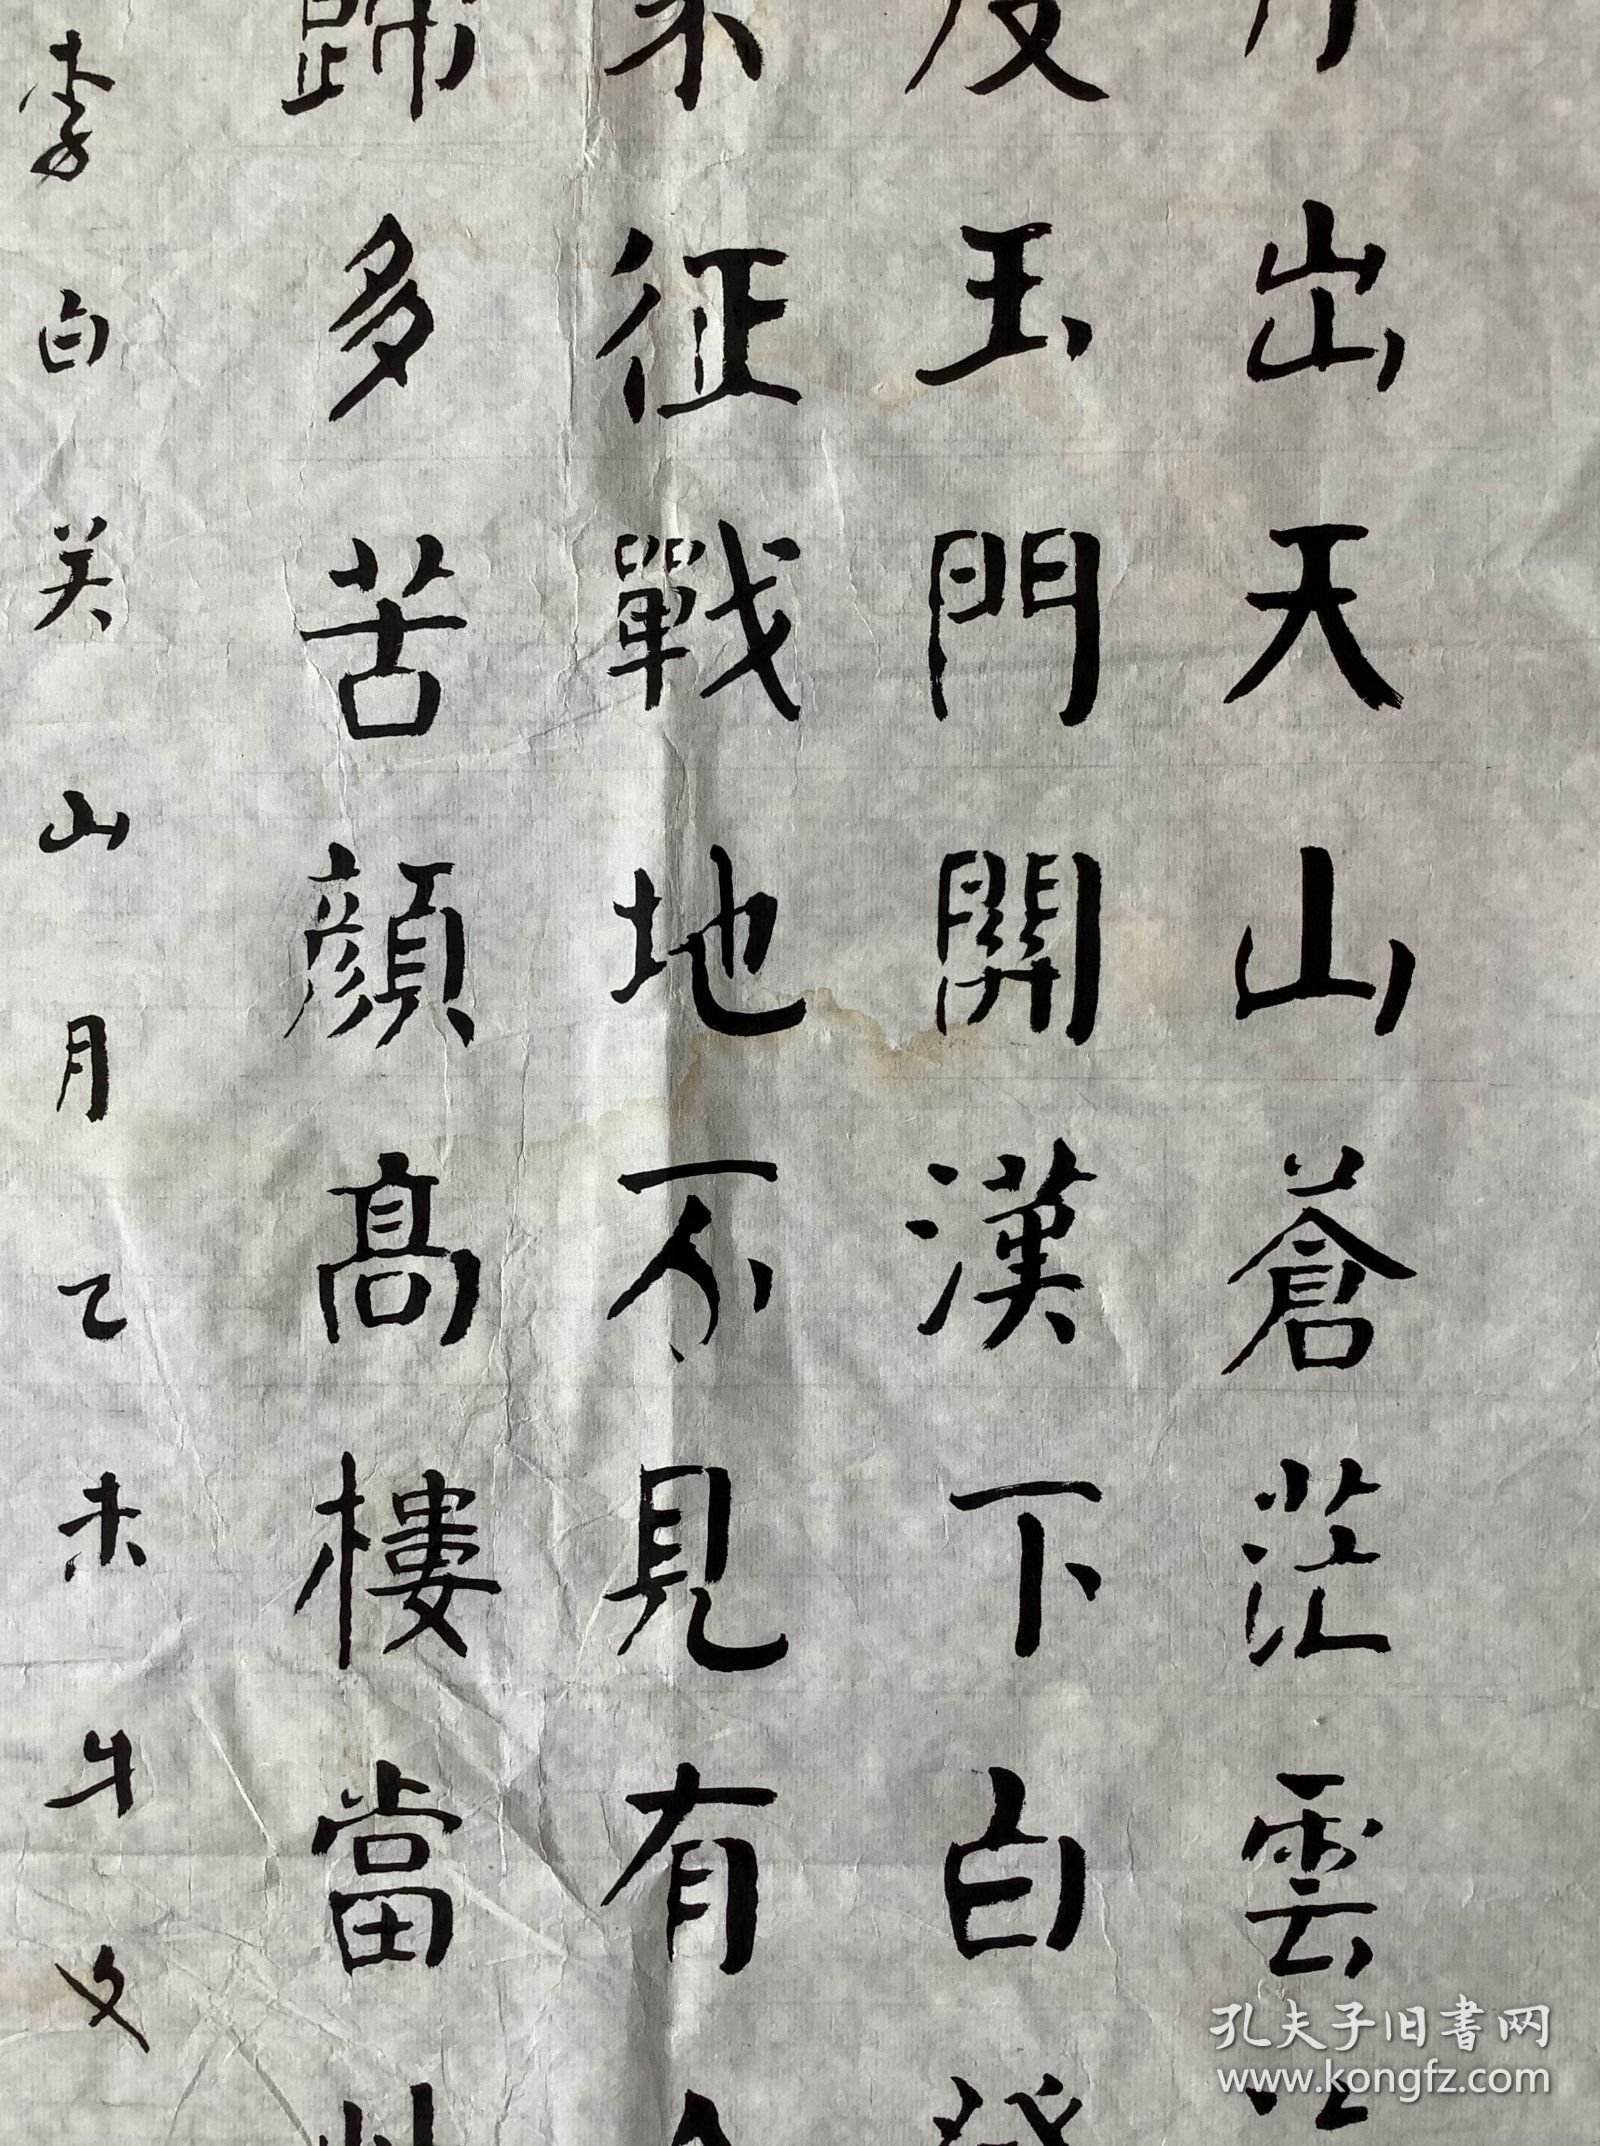 出天山蒼茫雲
度玉門關漢下白登
征戰地不見有
歸多苦顏高樓當
李白关山月乙未
孔夫子旧書网
www.kongfz.com